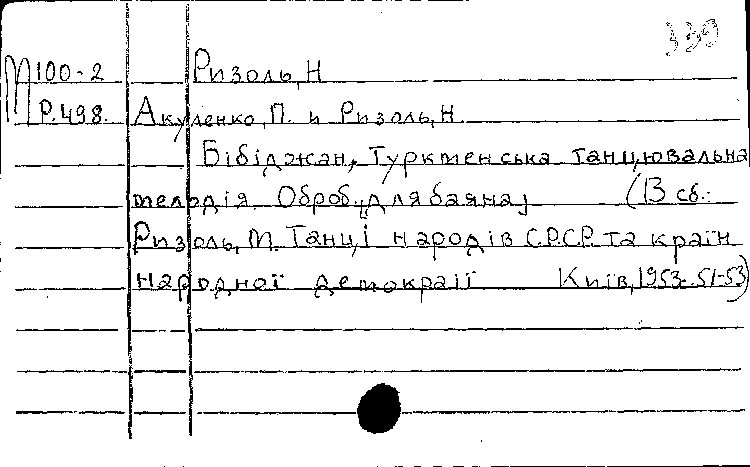 339
М100-2 Ризоль, Н
Р.498. Акуленко, П. и Ризоль, Н.
Бібіджан, Туркменська танцювальна
мелодія Оброб. для баяна, (В сб.:
Ризоль, М. Танці народів С.Р.С.Р. та країн
народної демокраії Київ, 1953. 51-53)